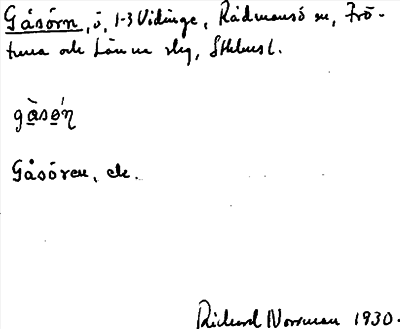 Gåsörn, ö, 1-3 Vidinge, Rådmansö sn, Frö-
tuna och Länna slg, Sthlms l.
gàsǿn̡
Gåsören, ek.
Richard Norrman 1930.